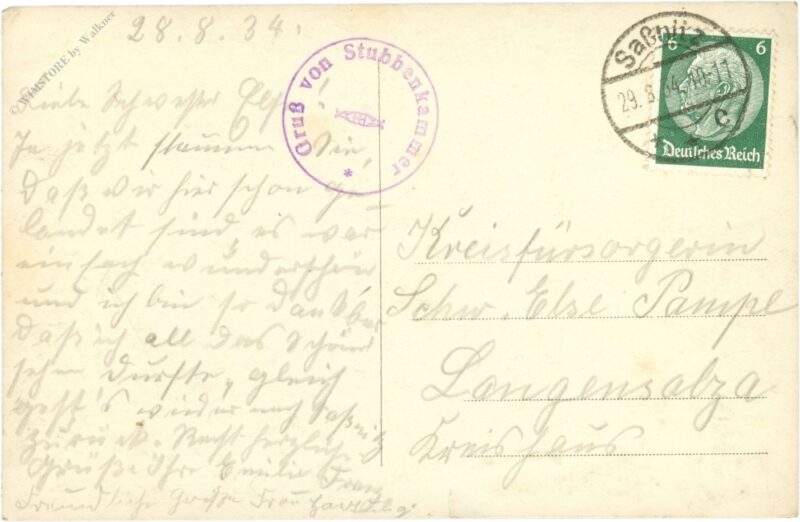 © WIMSTORE by Walkner
28.8.34.
Liebe Schwester Else!
Ja jetzt staunen Sie,
daß wir hier schon ge-
landet sind, es war
einfach wunderschön
und ich bin so dankbar
daß ich all das Schöne
sehen durfte, gleich
geht's wieder nach Saßnitz
zurück. Recht herzliche
Grüße Ihre Emilie Franz
Freundliche Grüße Frau
Gruß von Stubbenkammer
*
Saßnitz
29.8.34.10-11
c
6 6
Deutsches Reich
Kreisfürsorgerin
Schw. Else Pampe
Langensalza
Kreishaus